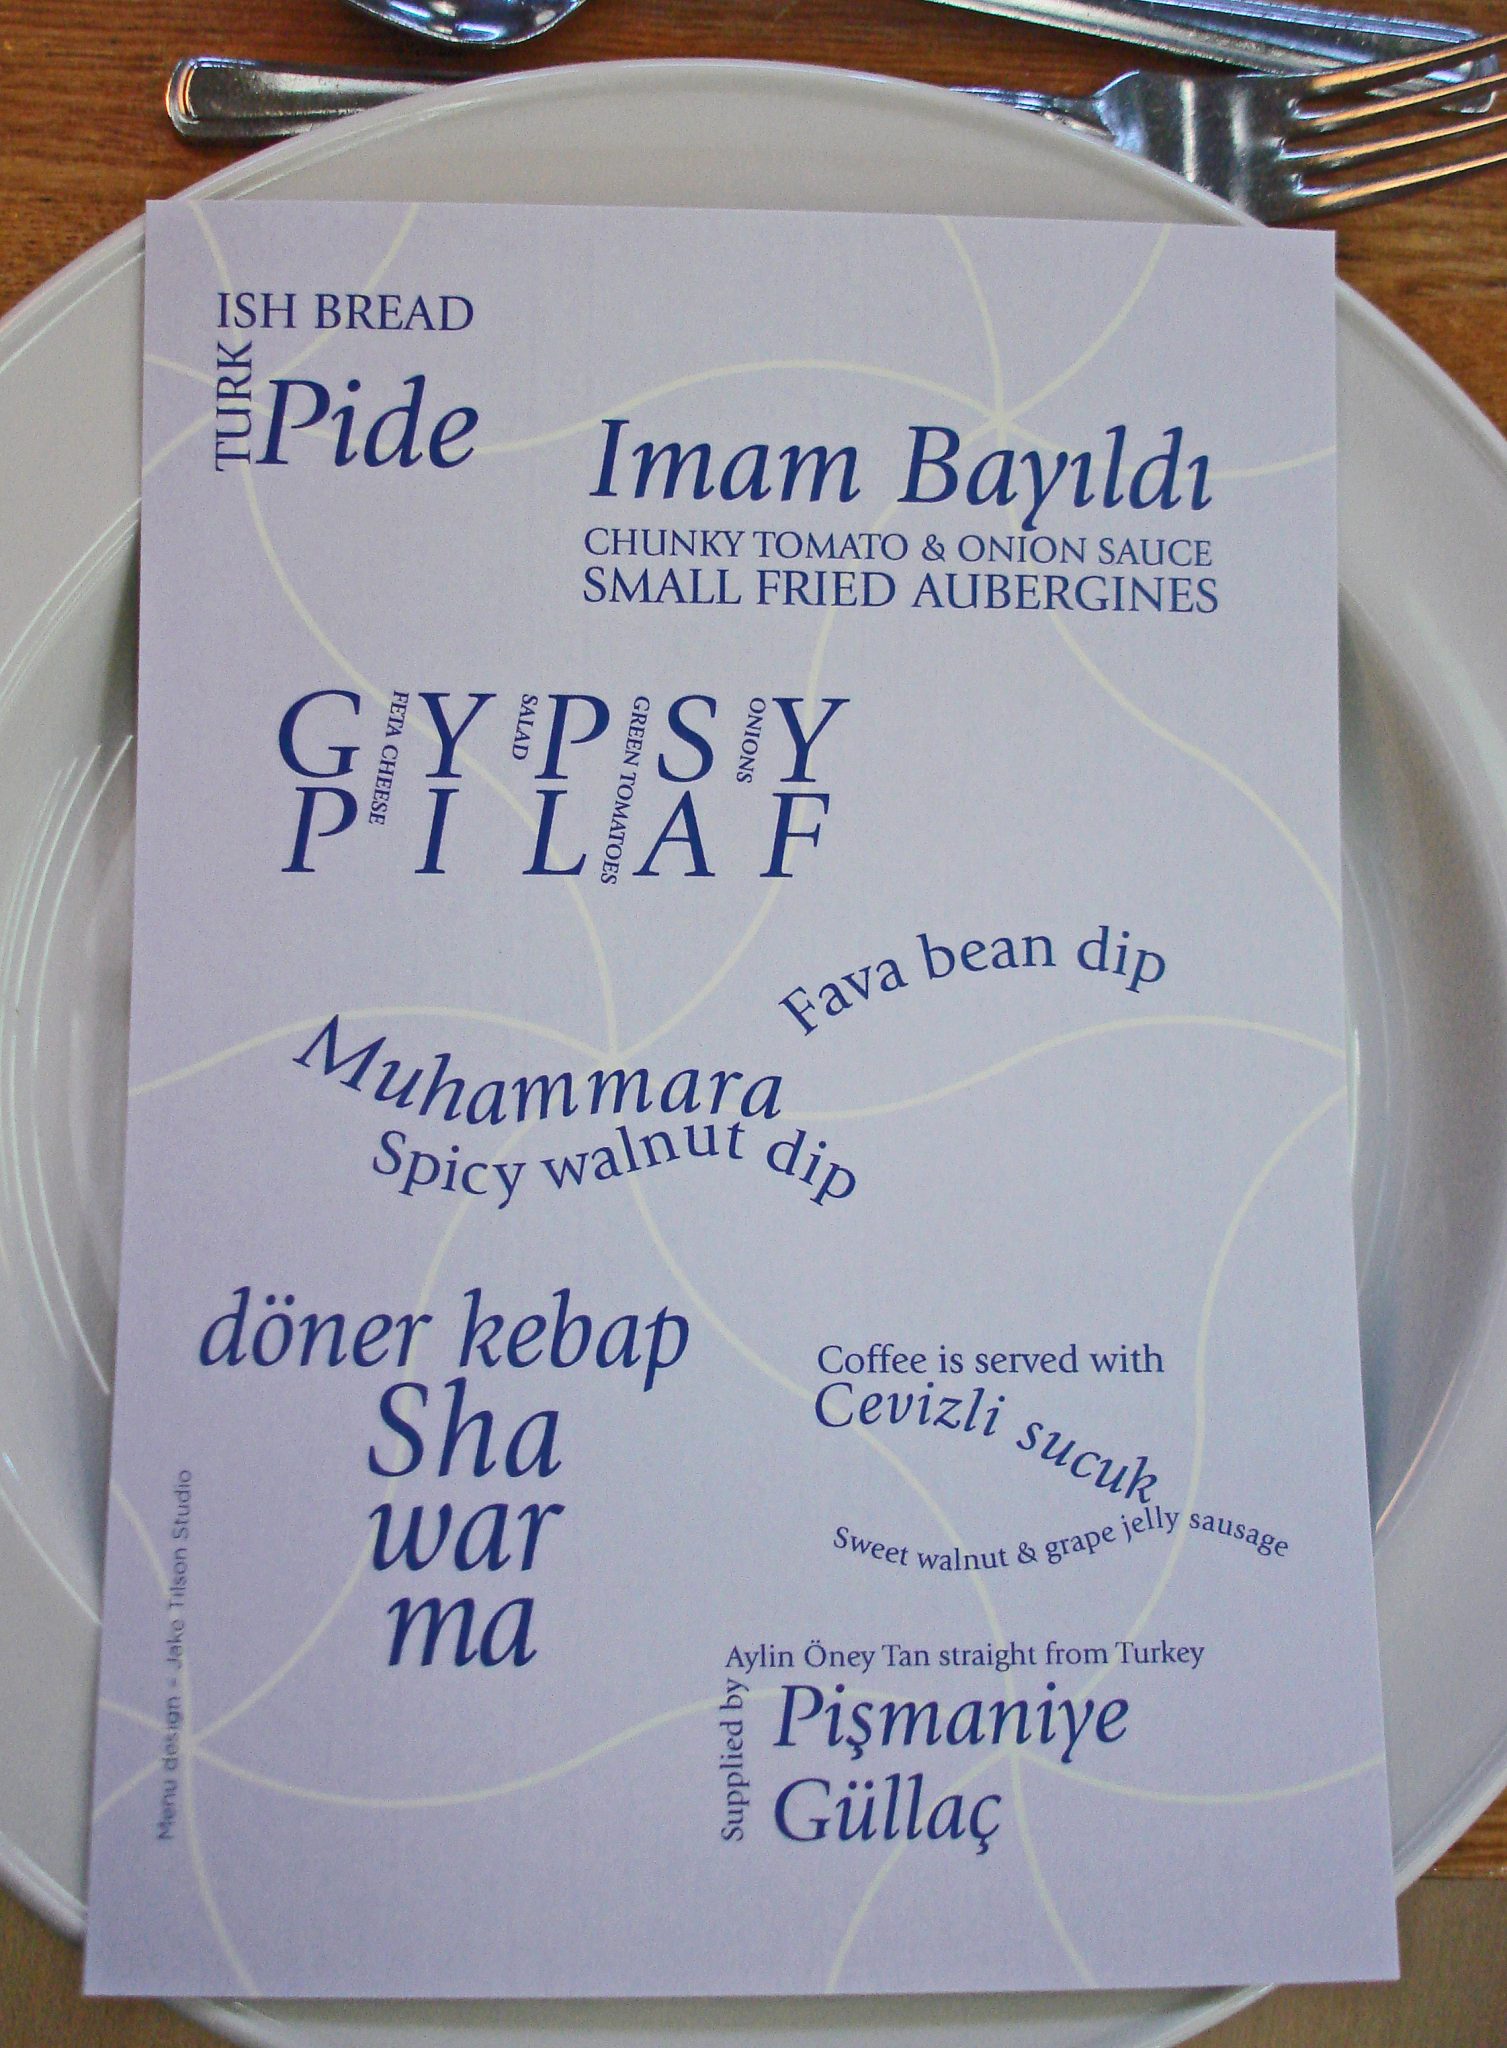 TURKISH BREAD
Pide
Imam Bayıldı
CHUNKY TOMATO & ONION SAUCE
SMALL FRIED AUBERGINES
GYPSY
PILAF
FETA CHEESE
SALAD
GREEN TOMATOES
ONIONS
Fava bean dip
Muhammara
Spicy walnut dip
döner kebap
Sha
war
ma
Coffee is served with
Cevizli sucuk
Sweet walnut & grape jelly sausage
Supplied by
Aylin Öney Tan straight from Turkey
Pişmaniye
Güllaç
Menu design - Jake Tilson Studio